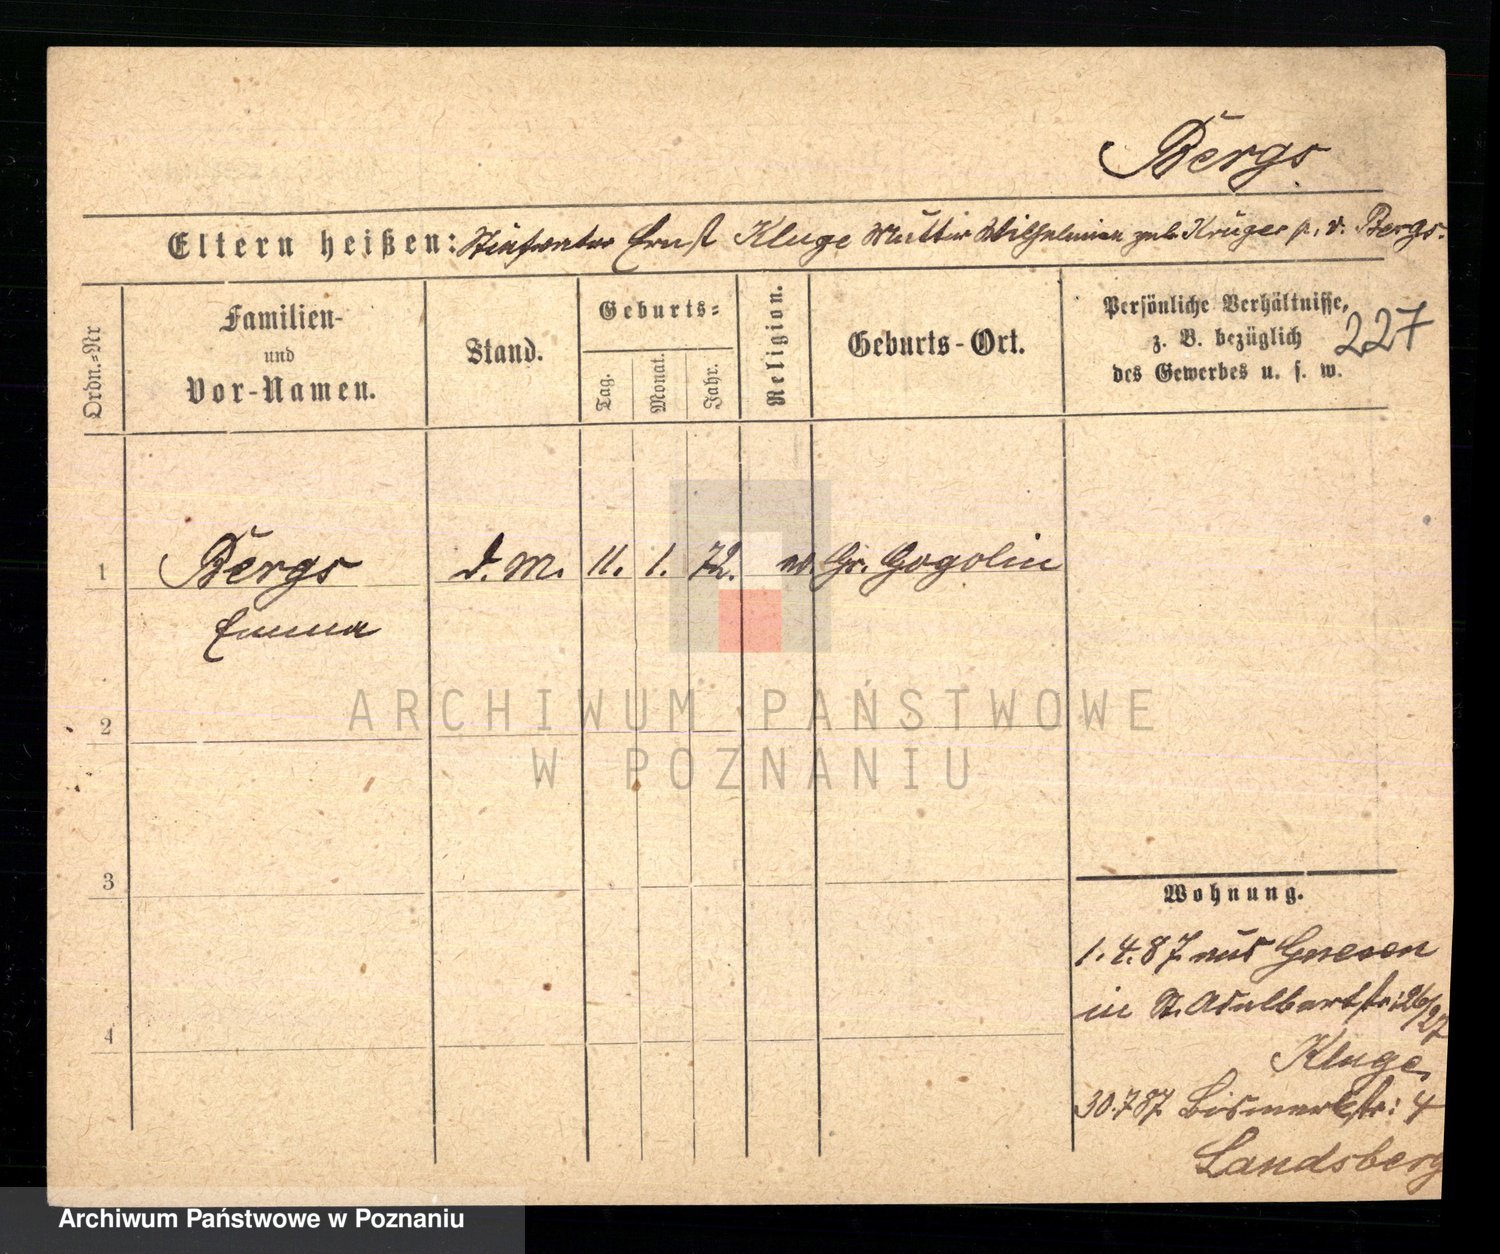 Bergs
Eltern heißen: Stiefvater Ernst Kluge Mutter Wilhelmine geb. Krüger p. v. Bergs.
Ordn.-Nr
Familien-
und
Vor-Namen.
Stand.
Geburts-
Tag.
Monat.
Jahr.
Religion.
Geburts-Ort.
Persönliche Verhältnisse,
z. B. bezüglich
des Gewerbes u. s. w.
227
1 Bergs d. M. 11. 1. 72. ev. Gr. Gogolin
Emma
2
3
4
Wohnung.
1. 4. 87 aus Gnesen
in St. Adalbertstr: 26/27
Kluge
30.7 87. Bismarckstr: 4
Landsberg
ARCHIWUM PAŃSTWOWE
W POZNANIU
Archiwum Państwowe w Poznaniu